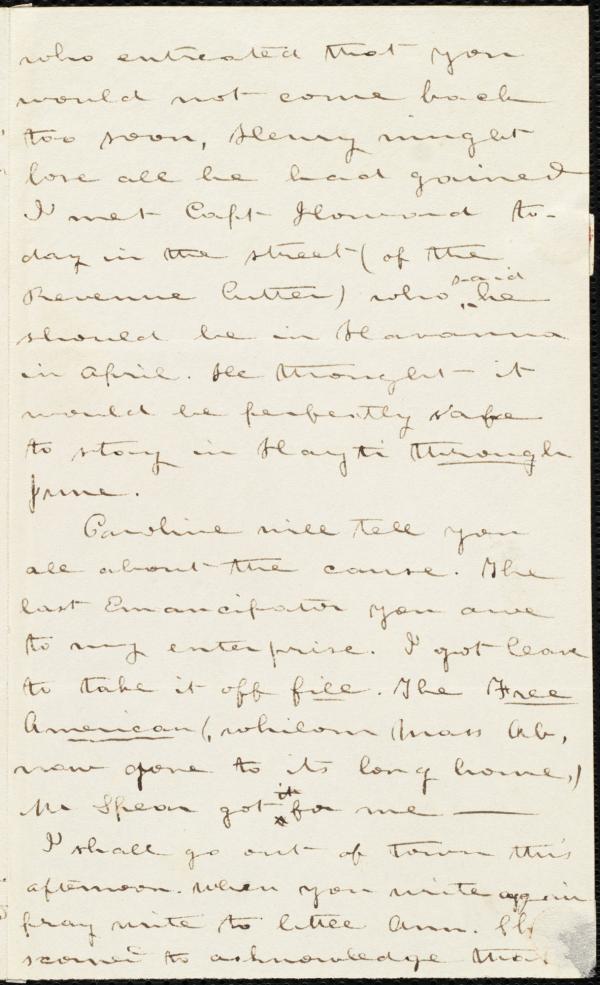 who entreated that you
would not come back
too soon, Henry might
lose all he had gained
I met Capt Howard to-
day in the street (of the
Revenue Cutter) who said he
should be in Havanna
in April. He thought it
would be perfectly safe
to stay in Hayti through
June.
Caroline will tell you
all about the cause. The
last Emancipator you owe
to my enterprise. I got leave
to take it off file. The Free
American (, whilom Mass Ab,
now gone to its long home,)
Mr Spear got it for me —
I shall go out of town this
afternoon. When you write again
pray write to little Ann. She
scorned to acknowledge that